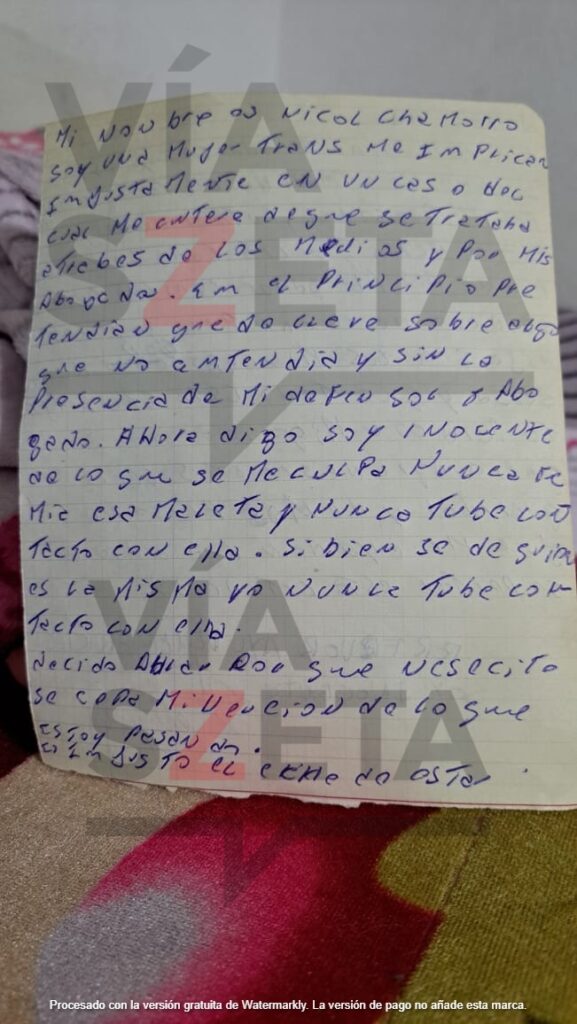 VÍA
SZETA
Mi nonbre es nicol chamorro
soy una Mujer Trans Me Implican
InJustaMente en un caso del
cual Me entere de que se trataba
atrebes de los Medios y Por Mis
Abogados. Em el Principio Pre
tendian que declare sobre algo
que no amtendia y sin la
Presencia de Mi defensor o Abo
gado. Ahora digo soy inocente
de lo que se Me culpa Nunca fe
Mia esa Maleta y Nunca Tube con
tacto con ella. Si bien se de quien
es la Misma yo Nunca Tube con
tacto con ella.
VÍA
SZETA
decido Por que nesecito
se cepa Mi de lo que
estoy Pasando.
es Imjusto el de esta
Procesado con la versión gratuita de Watermarkly. La versión de pago no añade esta marca.